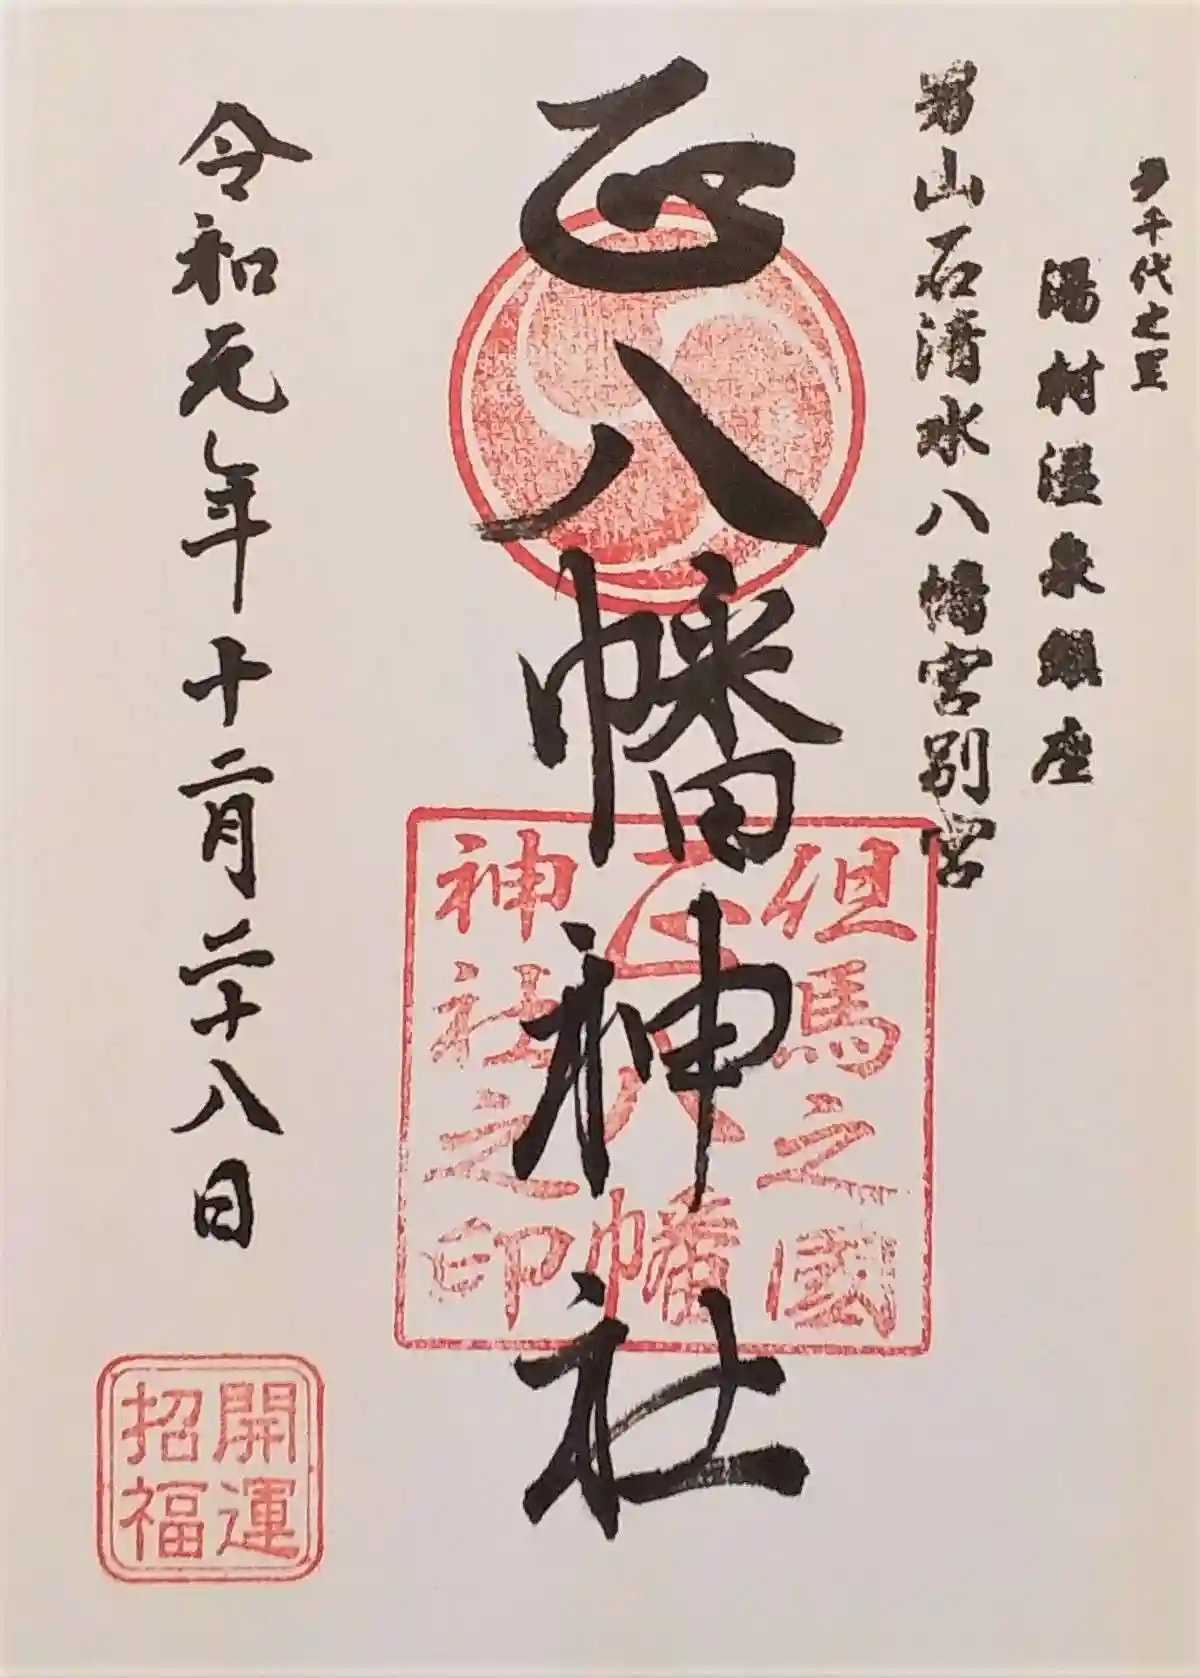 夢千代之里
湯村温泉鎮座
男山石清水八幡宮別宮
正八幡神社
但馬之國
正八幡
神社之印
令和元年十二月二十八日
開運
招福